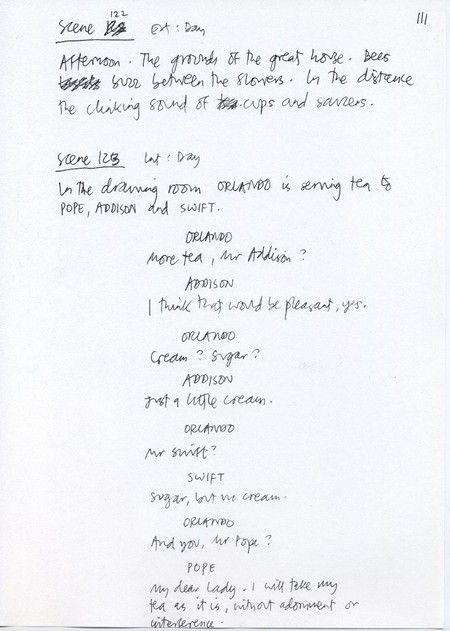 111
Scene 122 Ext : Day
Afternoon. The grounds of the great house. Bees
buzz between the flowers. In the distance
the clinking sound of cups and saucers.
Scene 123 Int : Day
In the drawing room ORLANDO is serving tea to
POPE, ADDISON and SWIFT.
ORLANDO
More tea, Mr Addison?
ADDISON
I think that would be pleasant, yes.
ORLANDO
Cream? Sugar?
ADDISON
Just a little cream.
ORLANDO
Mr Swift?
SWIFT
Sugar, but no cream.
ORLANDO
And you, Mr Pope?
POPE
My dear lady. I will take my
tea as it is, without adornment or
interference.